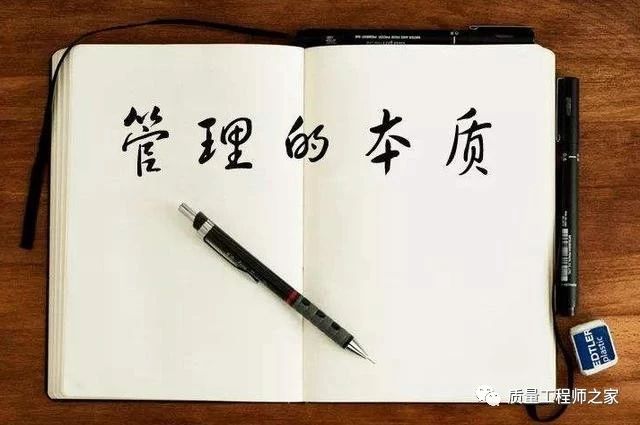 管理的本质
EDTLER
plastic
质量工程师之家